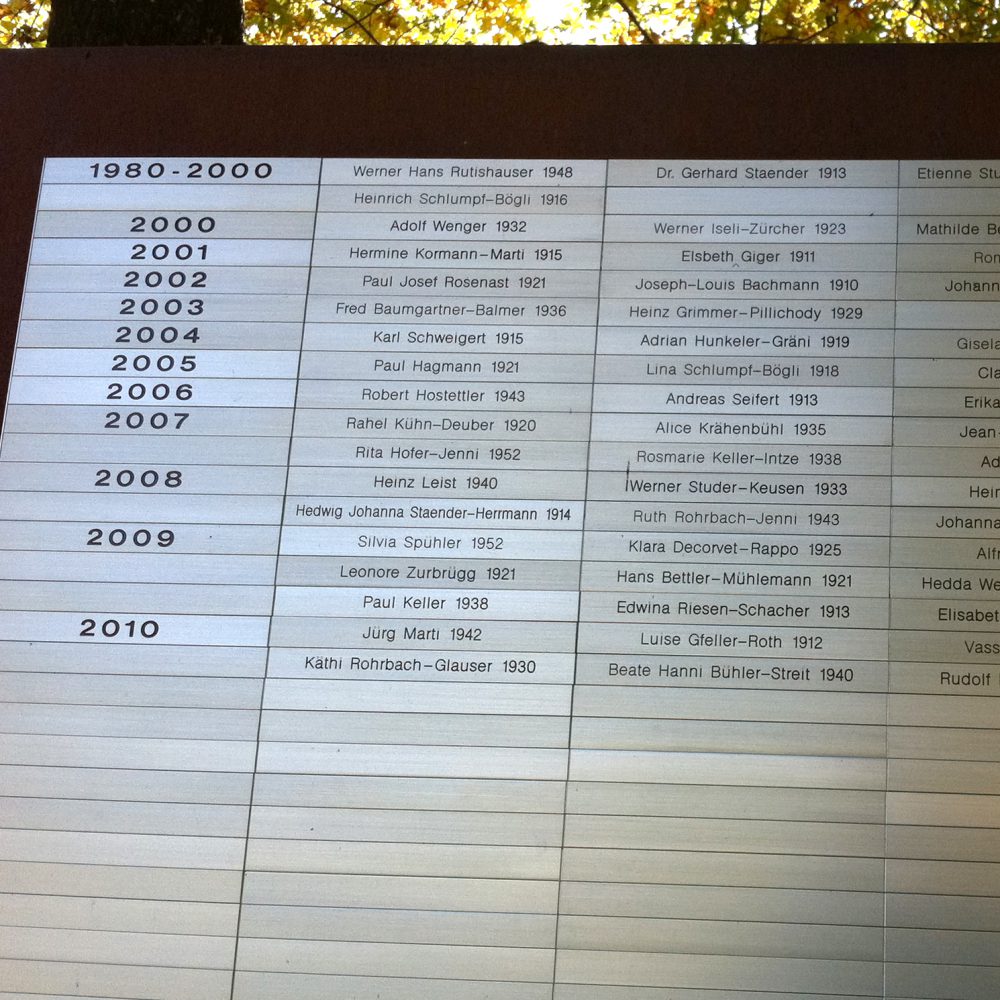 1980-2000 Werner Hans Rutishauser 1948 Dr. Gerhard Staender 1913 Etienne
Heinrich Schlumpf-Bögli 1916
2000 Adolf Wenger 1932 Werner Iseli-Zürcher 1923 Mathilde
2001 Hermine Kormann-Marti 1915 Elsbeth Giger 1911
2002 Paul Josef Rosenast 1921 Joseph-Louis Bachmann 1910
2003 Fred Baumgartner-Balmer 1936 Heinz Grimmer-Pillichody 1929
2004 Karl Schweigert 1915 Adrian Hunkeler-Gräni 1919
2005 Paul Hagmann 1921 Lina Schlumpf-Bögli 1918
2006 Robert Hostettler 1943 Andreas Seifert 1913 Erika
2007 Rahel Kühn-Deuber 1920 Alice Krähenbühl 1935 Jean-
Rita Hofer-Jenni 1952 Rosmarie Keller-Intze 1938
2008 Heinz Leist 1940 Werner Studer-Keusen 1933
Hedwig Johanna Staender-Herrmann 1914 Ruth Rohrbach-Jenni 1943 Johanna
2009 Silvia Spühler 1952 Klara Decorvet-Rappo 1925
Leonore Zurbrügg 1921 Hans Bettler-Mühlemann 1921 Hedda
Paul Keller 1938 Edwina Riesen-Schacher 1913 Elisabet
2010 Jürg Marti 1942 Luise Gfeller-Roth 1912
Käthi Rohrbach-Glauser 1930 Beate Hanni Bühler-Streit 1940 Rudolf